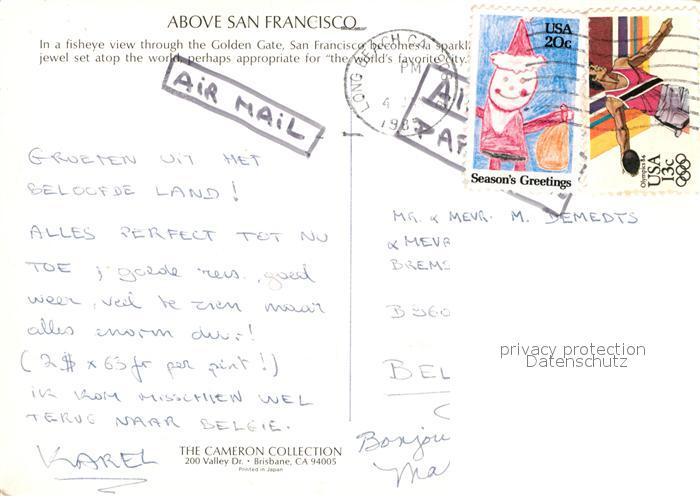 ABOVE SAN FRANCISCO
In a fisheye view through the Golden Gate, San Francisco becomes a sparkl
jewel set atop the world, perhaps appropriate for "the world's favorite city."
AIR MAIL
LONG BEACH CA
PM
4
198
AI
PAR
USA
20c
Season's Greetings
Olympics 84
USA
13c
GROETEN UIT HET
BELOOFDE LAND!
ALLES PERFECT TOT NU
TOE; goede reis, goed
weer, veel te zien maar
alles enorm duur!
(2$ x 65 fr per pint!)
IK KOM MISSCHIEN WEL
TERUG NAAR BELGIE.
KAREL
MR. & MEVR. M. DEMEDTS
& MEVR
BREMS
BEL
Bonjou
Ma
privacy protection
Datenschutz
THE CAMERON COLLECTION
200 Valley Dr. • Brisbane, CA 94005
Printed in Japan